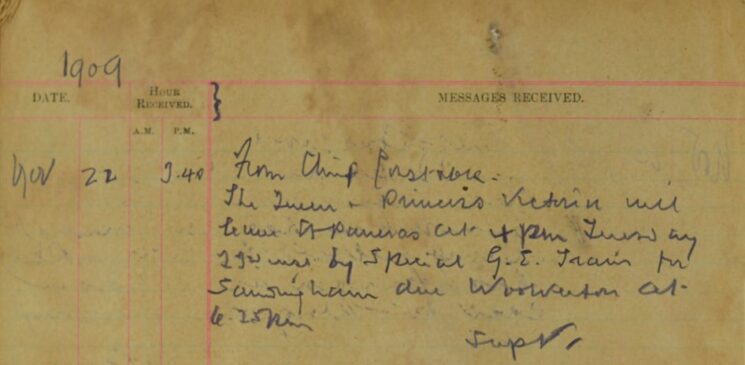 1909
DATE. HOUR RECEIVED. MESSAGES RECEIVED.
A.M. P.M.
Nov 22 3.40 From Chief Constable.
The Queen & Princess Victoria will
leave St Pancras at 4 pm Tuesday
23rd inst by Special G.E. Train for
Sandringham due Wolverton at
6.25pm
Supt.